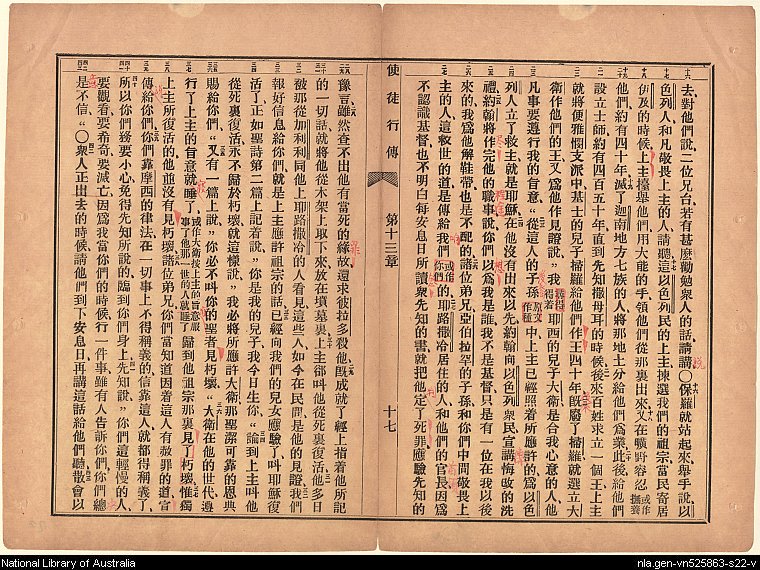 去對他們說二位兄台若有甚麼勸勉衆人的話請講〇保羅就站起來舉手說以
色列人和凡敬畏上主的人請聽這以色列民的上主揀選我們的祖宗當民寄居
伊及的時候上主擡舉他們用大能的手領他們從那裏出來又在曠野容忍或作撫養
他們約有四十年滅了迦南地方七族的人將那地土分給他們爲業此後給他們
設立士師約有四百五十年直到先知撒母耳的時候後來百姓求立一個王上主
就將便雅憫支派中基士的兒子掃羅給他們作王四十年旣廢了掃羅就選立大
衛作他們的王又爲他作見證說我尋得耶西的兒子大衛是合我心意的人他
凡事要遵行我的旨意從這人的子孫原文作種中上主已經照着所應許的爲以色
列人立了救主就是耶穌在他沒有出來以先約翰向以色列衆民宣講悔改的洗
禮約翰將作完他的職事說你們以爲我是誰我不是基督只是有一位在我以後
來的我爲他解鞋帶也是不配的諸位弟兄亞伯拉罕的子孫和你們中間敬畏上
主的人這救世的道是傳給我們或作你們的耶路撒冷居住的人和他們的官長因爲
不認識基督也不明白每安息日所讀衆先知的書就把他定了死罪應驗先知的
使徒行傳
第十三章
十七
豫言雖然查不出他有當死的緣故還求彼拉多殺他旣成就了經上指着他所記
的一切話就將他從木架上取下來放在墳墓裏上主卻叫他從死裏復活他多日
被那從加利利同他上耶路撒冷的人看見這些人如今在民間是他的見證我們
報好信息給你們就是上主應許祖宗的話已經向我們的兒女應驗了叫耶穌復
活了正如聖詩第二篇上記着說你是我的兒子我今日生你論到上主叫他
從死裏復活永不歸於朽壞就這樣說我必將所應許大衛那聖潔可靠的恩典
賜給你們又有一篇上說你必不叫你的聖者見朽壞大衛在他的世代遵
行了上主的旨意就睡了或作大衛按上主的旨意服事了他那一世的人就睡了歸到他祖宗那裏見了朽壞惟獨
上主所復活的他並沒有見朽壞諸位弟兄你們當知道因着這人有赦罪的道宣
傳給你們你們靠摩西的律法在一切事上不得稱義的信靠這人就都得稱義了
所以你們務要小心免得先知所說的臨到你們身上先知說你們這輕慢的人
要觀看要希奇要滅亡因爲我當你們的時候行一件事雖有人告訴你們你們總
是不信〇衆人正出去的時候請他們到下安息日再講這話給他們聽散會以
National Library of Australia
nla.gen-vn525863-s22-v